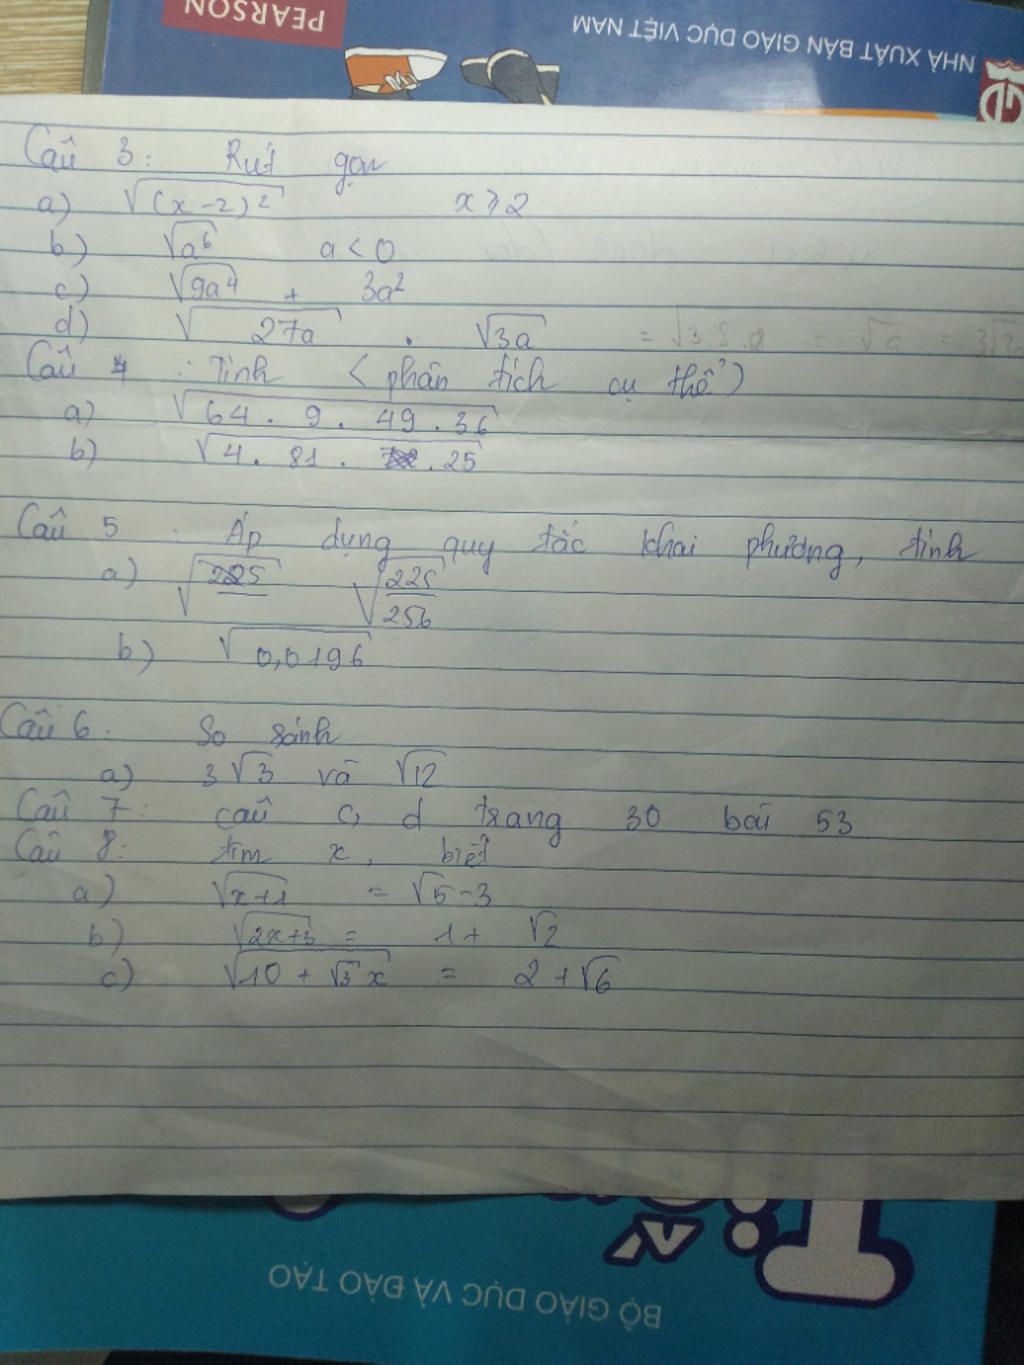 PEARSON
NHÀ XUẤT BẢN GIÁO DỤC VIỆT NAM
Câu 3: Rút gọn
a) √(x-2)² x ⩾ 2
b) √a⁶ a < 0
c) √9a⁴ + 3a²
d) √27a . √3a
Câu 4 : Tính < phân tích cụ thể)
a) √64 . 9 . 49 . 36
b) √4 . 81 . . 25
Câu 5 . Áp dụng quy tắc khai phương, tính
a) √225 √225/256
b) √0,0196
Câu 6. So sánh
a) 3√3 và √12
Câu 7: câu c, d trang 30 bài 53
Câu 8: tìm x, biết
a) √x+1 = √5-3
b) √2x+3 = 1+ √2
c) √10 + √3 x = 2 + √6
BỘ GIÁO DỤC VÀ ĐÀO TẠO